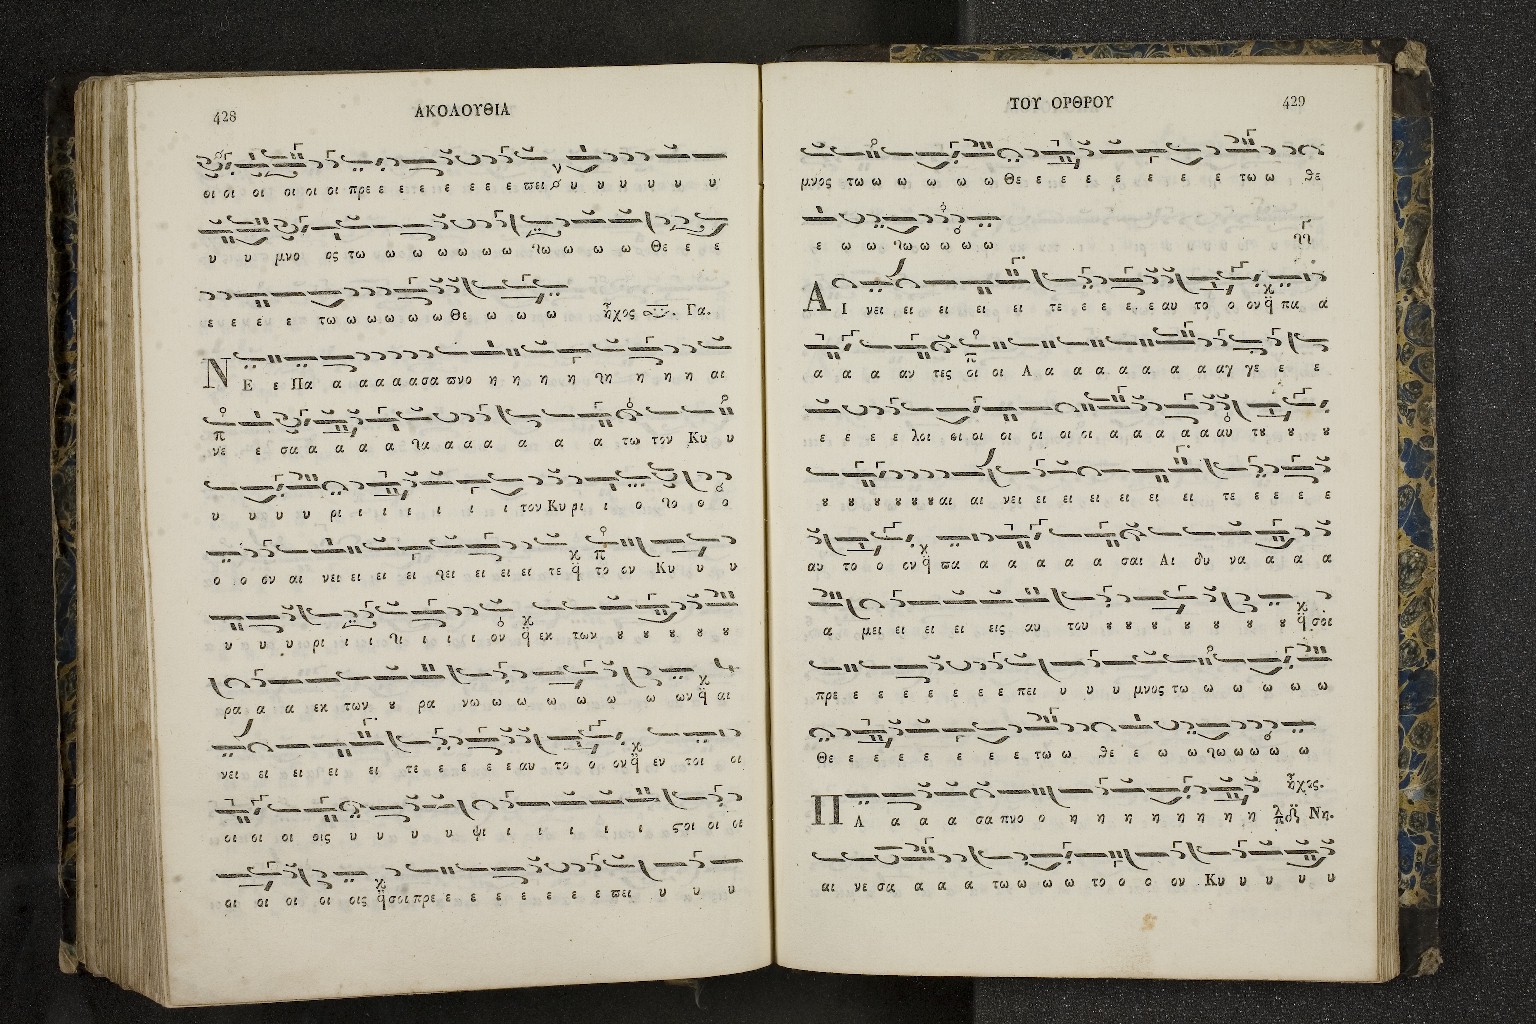 428
ΑΚΟΛΟΥΘΙΑ
οι οι οι οι οι οι πρε ε ε ε ε ε ε ε πει υ υ υ υ υ υ
υ υ μνο ος τω ω ω ω ω ω ω ω ω ω Θε ε ε
ε ε ε ε τω ω ω ω ω ω Θε ω ω ω ἦχος Γα.
Ν Ε ε Πα α α α α α σα πνο η η η η η η η αι
νε ε σα α α α α α α α α α α τω τον Κυ υ
υ υ υ υ ρι ι ι ι ι ι ι τον Κυ ρι ι ο ο ο
ο ο ον αι νει ει ει ει ει ει ει ει τε το ον Κυ υ υ
υ υ υ ρι ι ι ι ι ι ον εκ των ȣ ȣ ȣ ȣ ȣ
ρα α α εκ των ȣ ρα νω ω ω ω ω ω ω ων αι
νει ει ει ει ει τε ε ε ε ε αυ το ο ον εν τοι οι
οι οι οι οις υ υ υ υ ψι ι ι ι ι ϛοι οι οι
οι οι οι οι οις σοι πρε ε ε ε ε ε ε ε πει υ υ υ
ΤΟΥ ΟΡΘΡΟΥ
429
μνος τω ω ω ω ω ω Θε ε ε ε ε ε ε ε ε τω ω θε
ε ω ω ω ω ω ω ω
Α Ι νει ει ει ει ει τε ε ε ε ε αυ το ο ον πα α
α α α αν τες οι οι Α α α α α α α α αγ γε ε ε
ε ε ε ε λοι οι οι οι οι οι οι α α α α α αυ τȣ ȣ ȣ
ȣ ȣ ȣ ȣ ȣ αι αι νει ει ει ει ει ει ει τε ε ε ε ε
αυ το ο ον πα α α α α α σαι Αι δυ να α α α
α μει ει ει ει ει εις αυ του ȣ ȣ ȣ ȣ ȣ ȣ ȣ σοι
πρε ε ε ε ε ε ε ε πει υ υ υ μνος τω ω ω ω ω ω
Θε ε ε ε ε ε ε ε τω ω θε ε ω ω ω ω ω ω ω
ἦχος.
Π Α α α α σα πνο ο η η η η η η η η Νη.
αι νε σα α α α τω ω ω ω το ο ο ον Κυ υ υ υ υ